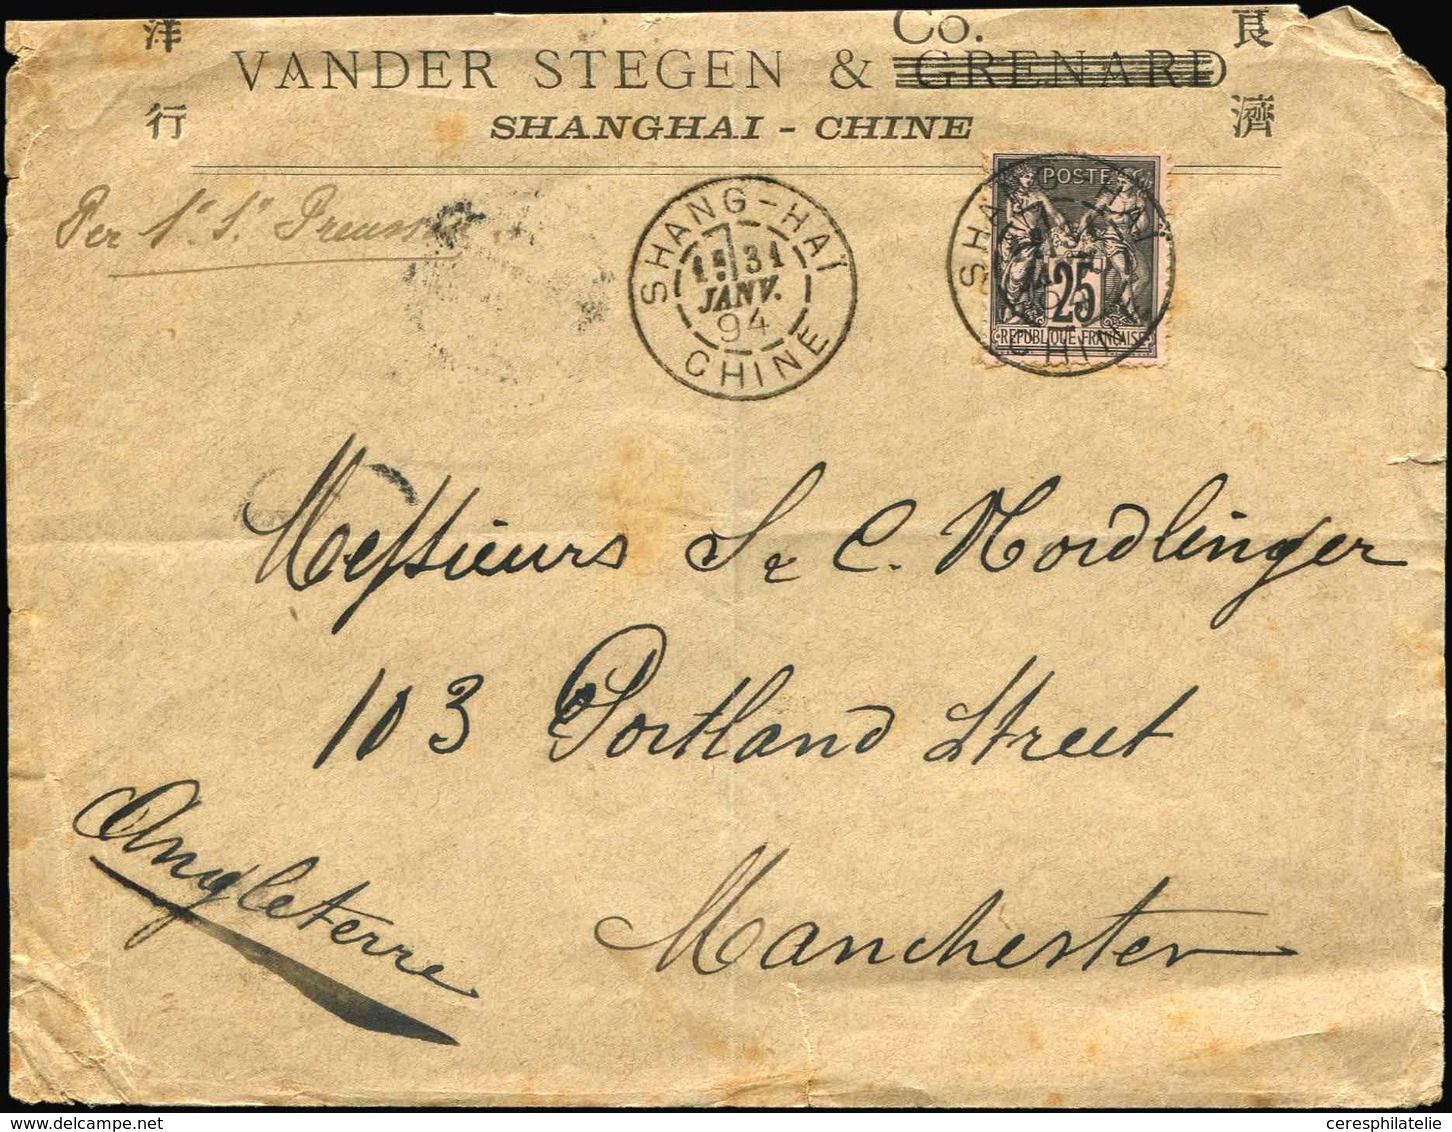 良 洋
濟 行
Co.
VANDER STEGEN & GRENARD
SHANGHAI - CHINE
Per S. S. Preussen
SHANG-HAÏ
31
JANV.
94
CHINE
POSTE
25
REPUBLIQUE FRANÇAISE
SHANG-HAÏ
CHINE
Messieurs S & C. Nordlinger
103 Portland Street
Manchester
Angleterre
www.delcampe.net
ceresphilatelie